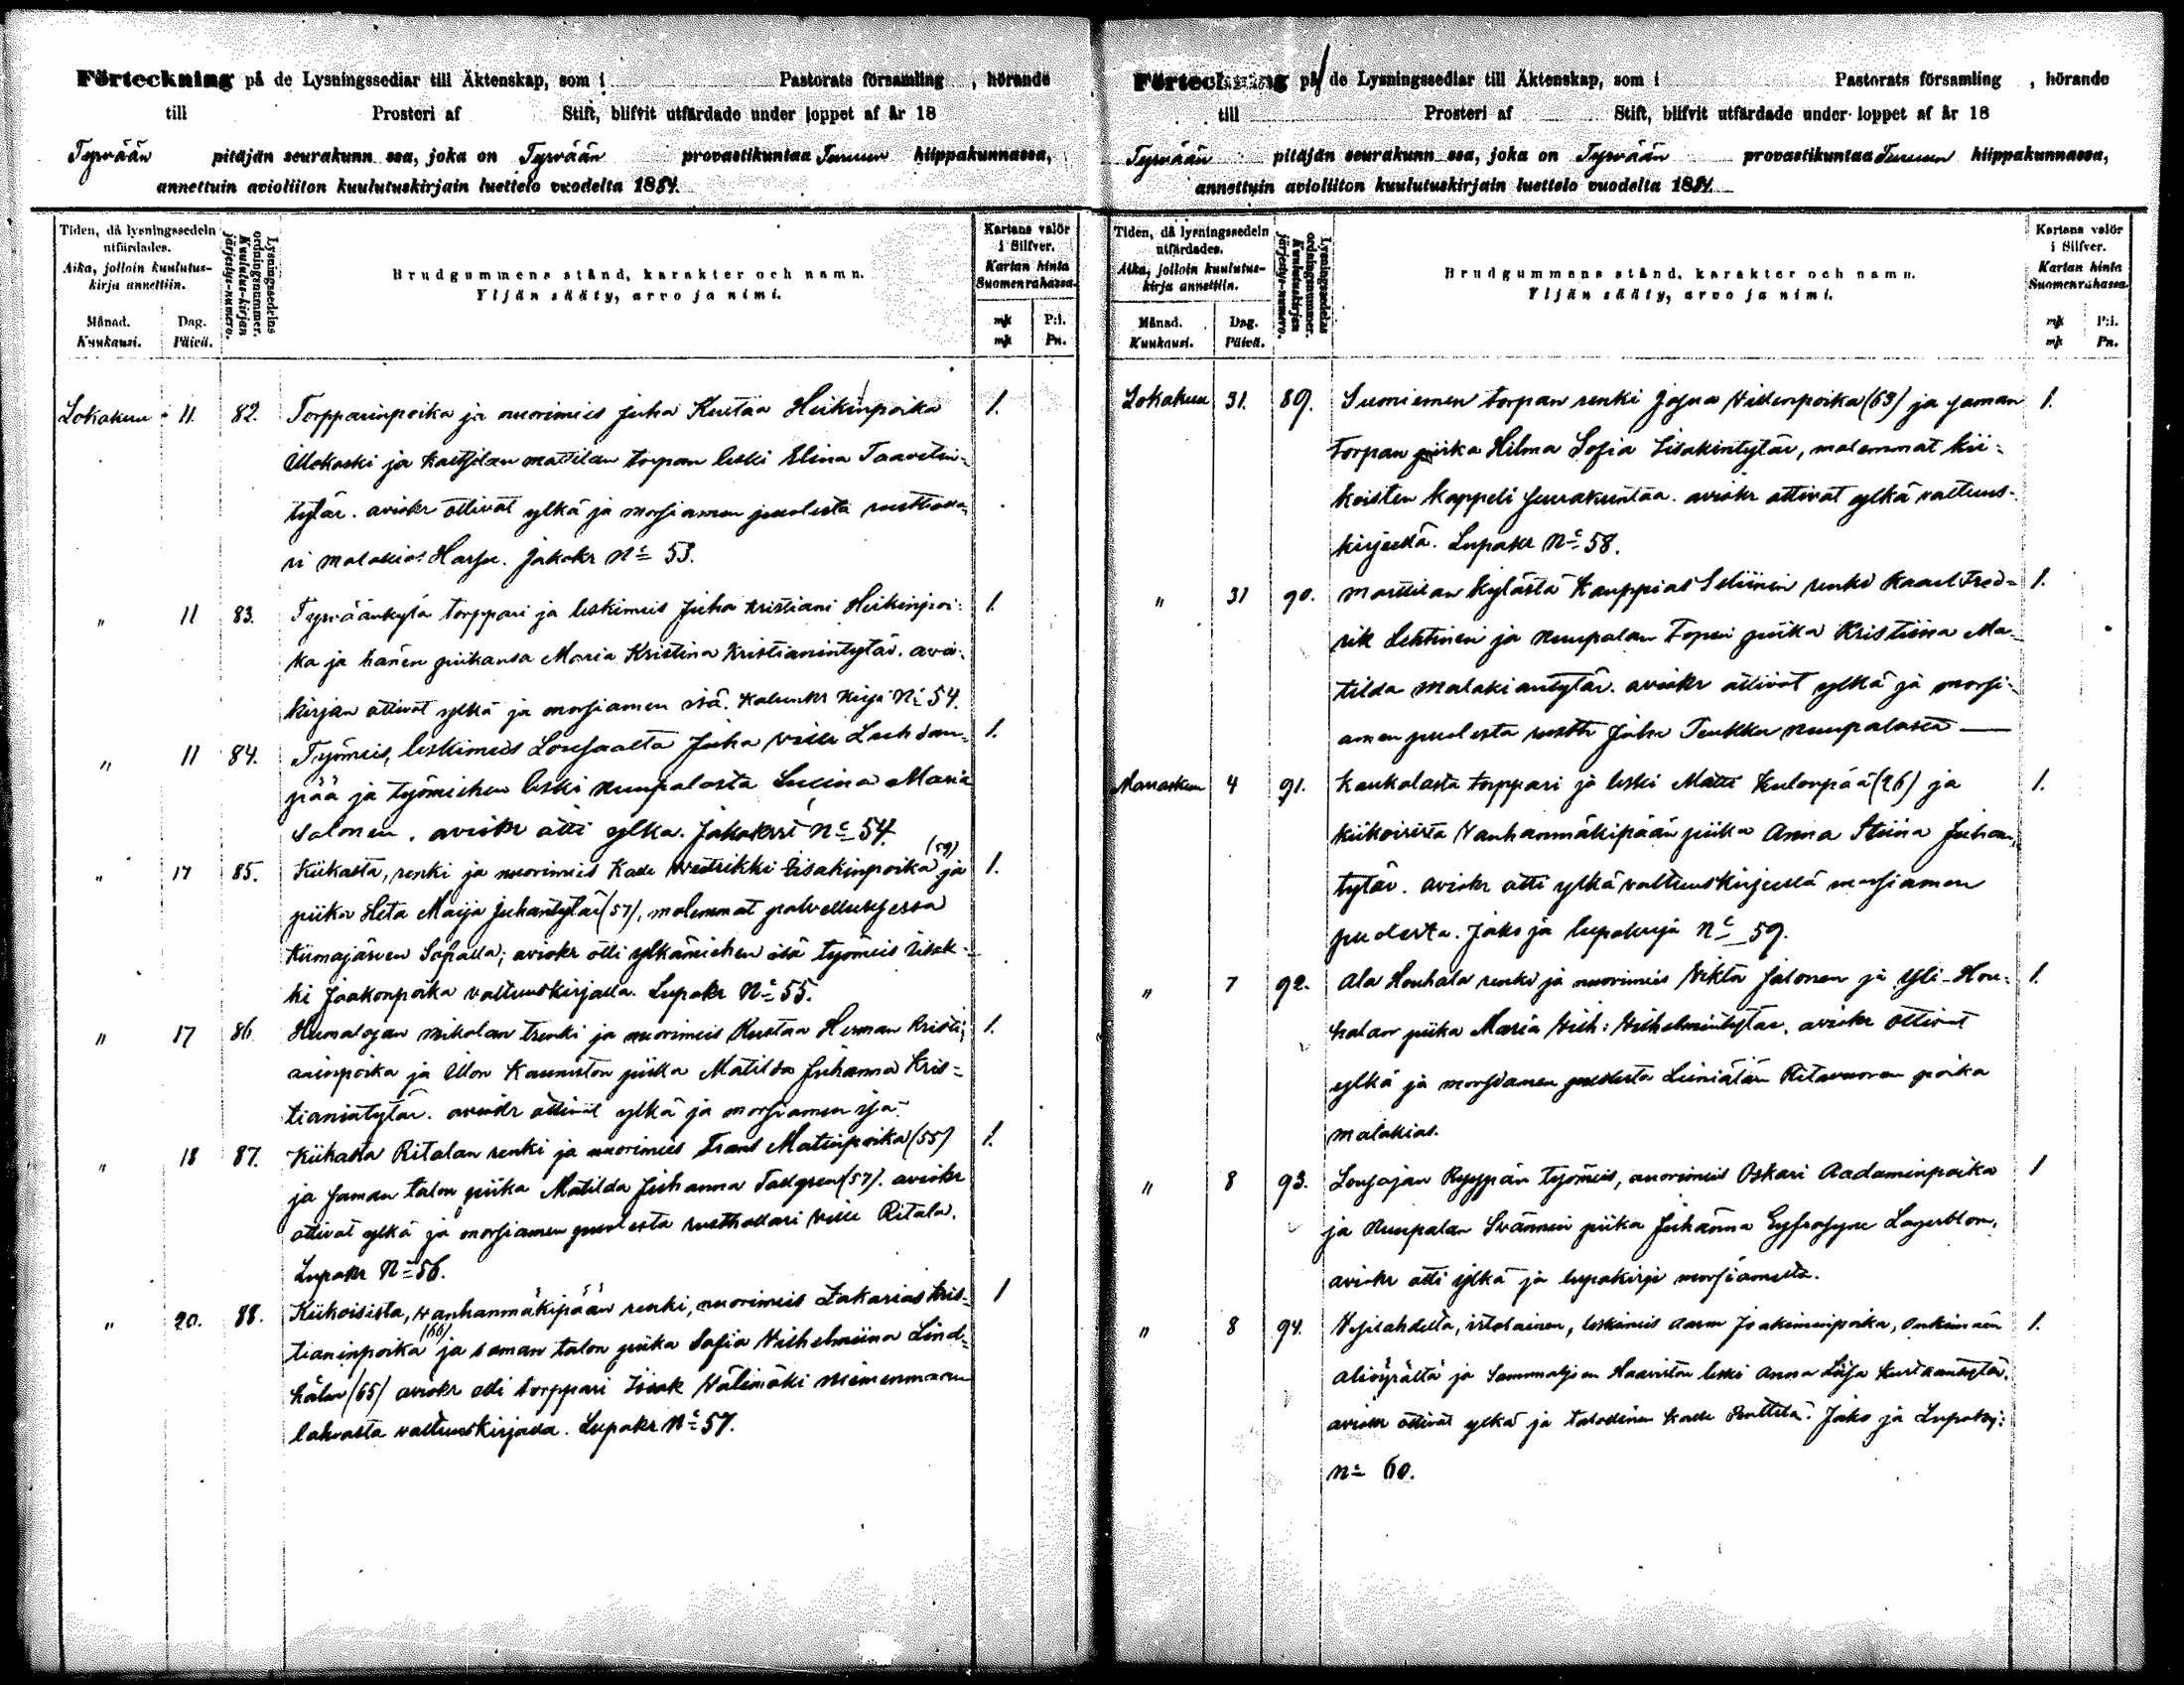 Förteckning på de Lysningssedlar till Äktenskap, som i Pastorats församling , hörande
till Prosteri af Stift, blifvit utfärdade under loppet af år 18
Tyrvään pitäjän seurakunn ssa, joka on Tyrvään provastikuntaa Turun hiippakunnassa,
annettuin avioliiton kuulutuskirjain luettelo vuodelta 1884.
Tiden, då lysningssedeln utfärdades.
Aika, jolloin kuulutus-kirja annettiin.
Månad. Kuukausi.
Dag. Päivä.
Lysningssedelns ordningsnummer. Kuulutus-kirjan järjestys-numero.
Brudgummens stånd, karakter och namn.
Yljän sääty, arvo ja nimi.
Kartans valör i Silfver.
Kartan hinta Suomenrahassa.
mk P:i.
mk Pn.
Lokakuu 11. 82. Torpparinpoika ja nuorimies Juha Kustaa Heikinpoika 1.
ja Mattilan torpan leski Elina Taavetin-
tytär. aviokr ottivat ylkä ja morsiamen puolesta
ri malakias Harju. Jakokr No 53.
" 11 83. Tyrväänkylä torppari ja leskimies Juha Kristiani Heikinpoi- 1.
ka ja hänen piikansa Maria Kristina Kristianintytär. avio-
kirjan ottivat ylkä ja morsiamen isä. No 54.
" 11 84. Työmies, leskimies Juha Ville 1.
pää ja työmiehen leski nuupalasta Maria
Salonen. aviokr otti ylkä. No 54.
" 17 85. Kiikasta, renki ja nuorimies Kalle Iisakinpoika (59) ja 1.
piika Heta Maija Juhantytär (57), molemmat palvelluksessa
Kiimajärven aviokr otti ylkämiehen isä työmies Iisak-
ki Jaakonpoika valtuuskirjalla. Lupakr No 55.
" 17 86. Humalojan Mikolan renki ja nuorimies Kustaa Herman Kristi- 1.
aninpoika ja Illon Kauniston piika Matilda Juhanna Kris-
tianintytär. aviokr ottivat ylkä ja morsiamen isä.
" 18 87. Kiikasta Ritalan renki ja nuorimies Frans Matinpoika (55) 1.
ja saman talon piika Matilda Juhanna (57). aviokr
ottivat ylkä ja morsiamen puolesta rusthollari Ville Ritala.
Lupakr No 56.
" 20. 88. Kiikoisista, Vanhanmäkipään renki, nuorimies Zakarias Kris- 1
tianinpoika (66) ja saman talon piika Sofia Vilhelmiina Lind-
(65) aviokr otti torppari Iisak Välimäki
valtuuskirjalla. Lupakr No 57.
Förteckning på de Lysningssedlar till Äktenskap, som i Pastorats församling , hörande
till Prosteri af Stift, blifvit utfärdade under loppet af år 18
Tyrvään pitäjän seurakunn ssa, joka on Tyrvään provastikuntaa Turun hiippakunnassa,
annettuin avioliiton kuulutuskirjain luettelo vuodelta 1884.
Tiden, då lysningssedeln utfärdades.
Aika, jolloin kuulutus-kirja annettiin.
Månad. Kuukausi.
Dag. Päivä.
Lysningssedelns ordningsnummer. Kuulutuskirjan järjestys-numero.
Brudgummens stånd, karakter och namn.
Yljän sääty, arvo ja nimi.
Kartans valör i Silfver.
Kartan hinta Suomenrahassa.
mk P:i.
mk Pn.
Lokakuu 31. 89. Suoniemen torpan renki Josua Videnpoika (63) ja saman 1.
torpan piika Hilma Sofia Iisakintytär, molemmat Kii-
koisten kappeli seurakuntaa. aviokr ottivat ylkä valtuus-
kirjeellä. Lupakr No 58.
" 31 90. Marttilan kylästä Kauppias renki Kaarl Fred- 1.
rik Lehtinen ja nuupalan piika Kristiina Ma-
tilda Malakiantytär. aviokr ottivat ylkä ja morsi-
amen puolesta rusth Juha nuupalasta —
Marraskuu 4 91. Kaukolasta torppari ja leski Matti Kulonpää (26) ja 1.
kiikoisista Vanhanmäkipään piika Anna Stiina Juhan-
tytär. aviokr otti ylkä valtuuskirjeellä morsiamen
puolesta. Jako ja lupakirja No 59.
" 7 92. Ala Houhala renki ja nuorimies Vihta Jalonen ja Yli-Hou- 1.
halan piika Maria Vilh: Vilhelmintytär. aviokr ottivat
ylkä ja morsiamen puolesta Ritavuoren poika
malakias.
" 8 93. työmies, nuorimies Oskari Aadaminpoika 1
ja nuupalan piika Juhanna Lagerblom,
aviokr otti ylkä ja lupakirja morsiamelta.
" 8 94. Vesilahdelta, itsellinen, leskimies Joakiminpoika, 1.
ja leski Anna Liisa Kustaantytär.
aviokr ottivat ylkä ja talollinen Kalle Jako ja
No 60.